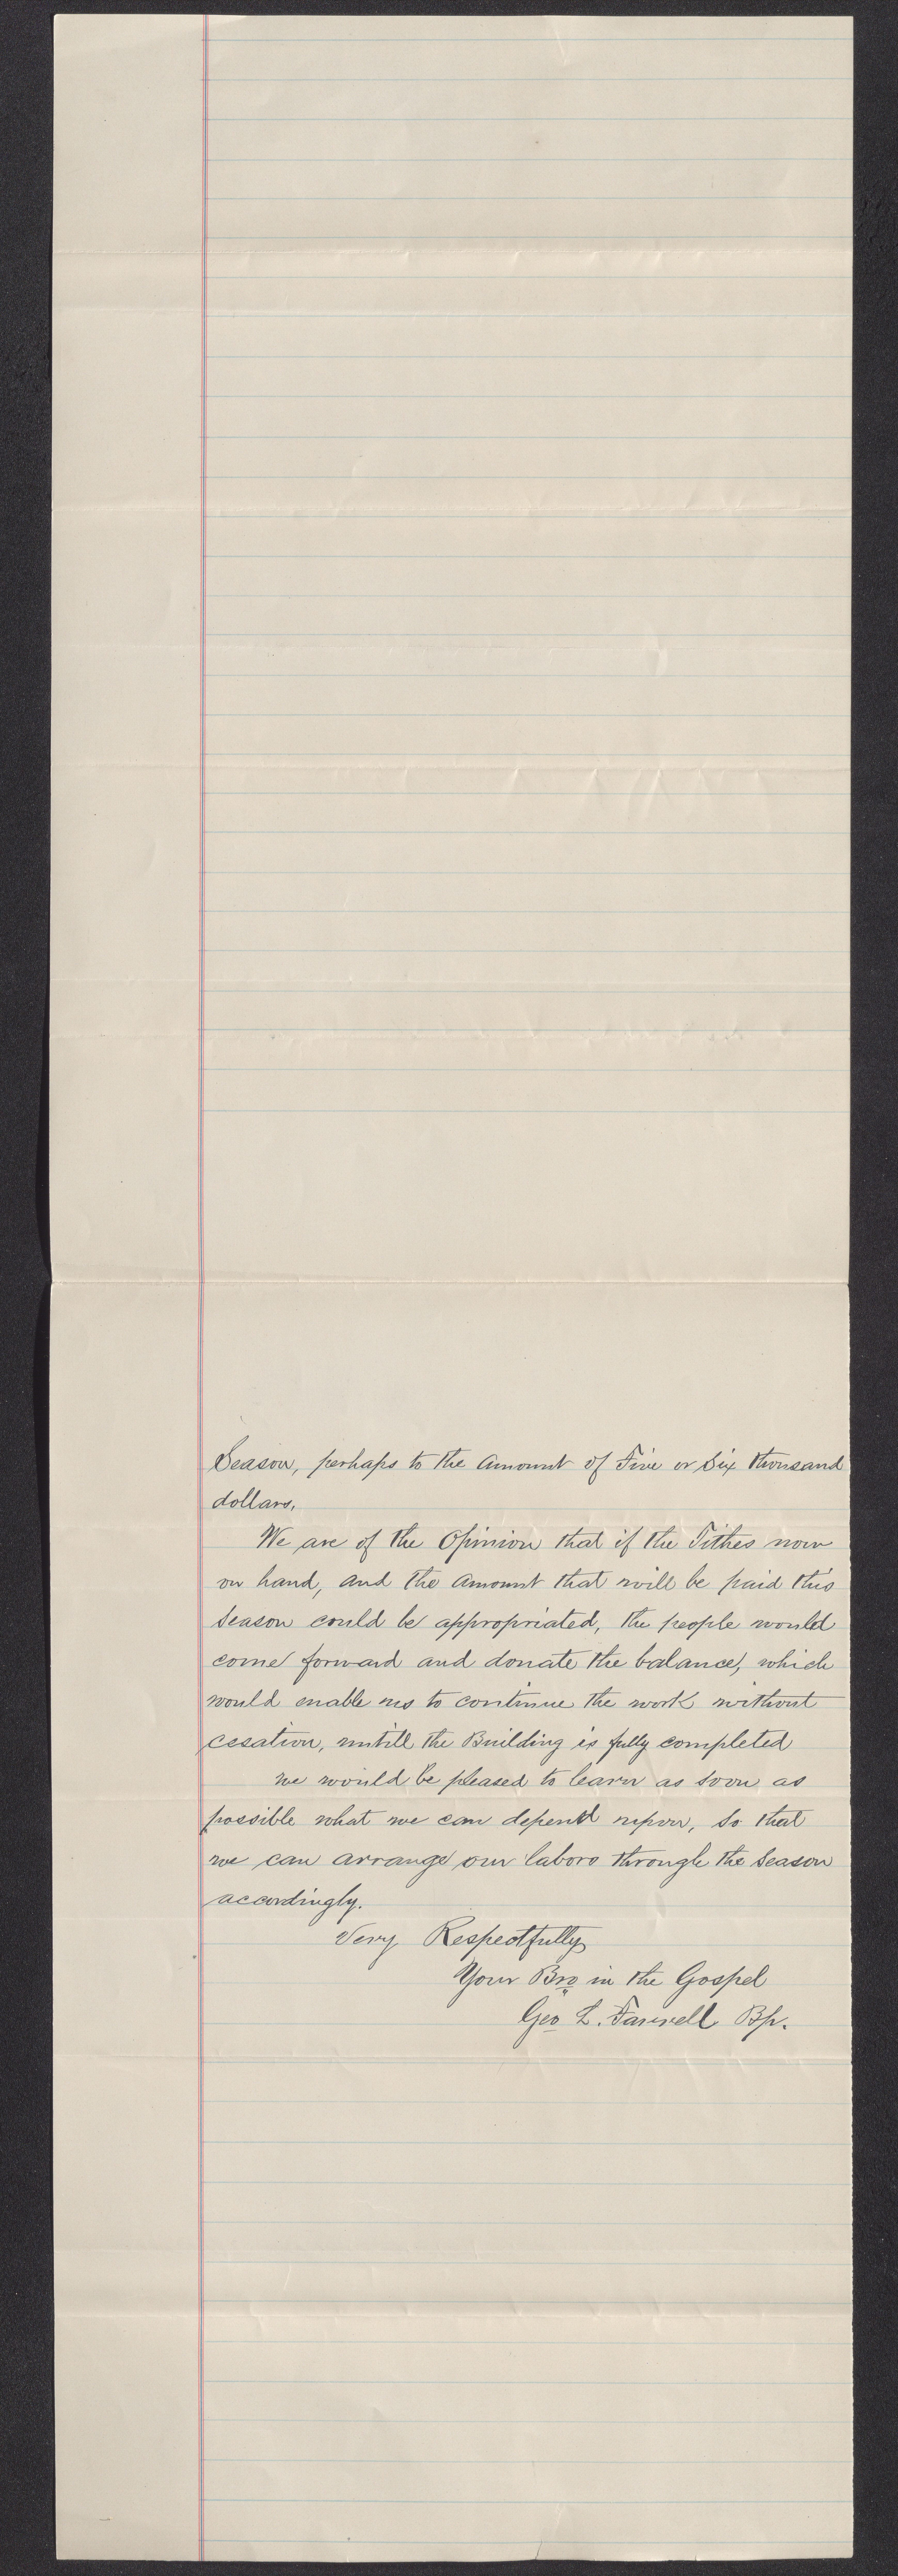 Season, perhaps to the Amount of Five or Six thousand
dollars.
We are of the Opinion that if the Tithes now
on hand, and the Amount that will be paid this
Season could be appropriated, the people would
come forward and donate the balance, which
would enable us to continue the work without
cesation, untill the Building is fully completed
we would be pleased to learn as soon as
possible what we can depend upon, so that
we can arrange our labors through the Season
accordingly.
Very Respectfully
Your Bro in the Gospel
Geo L. Farrell Bp.